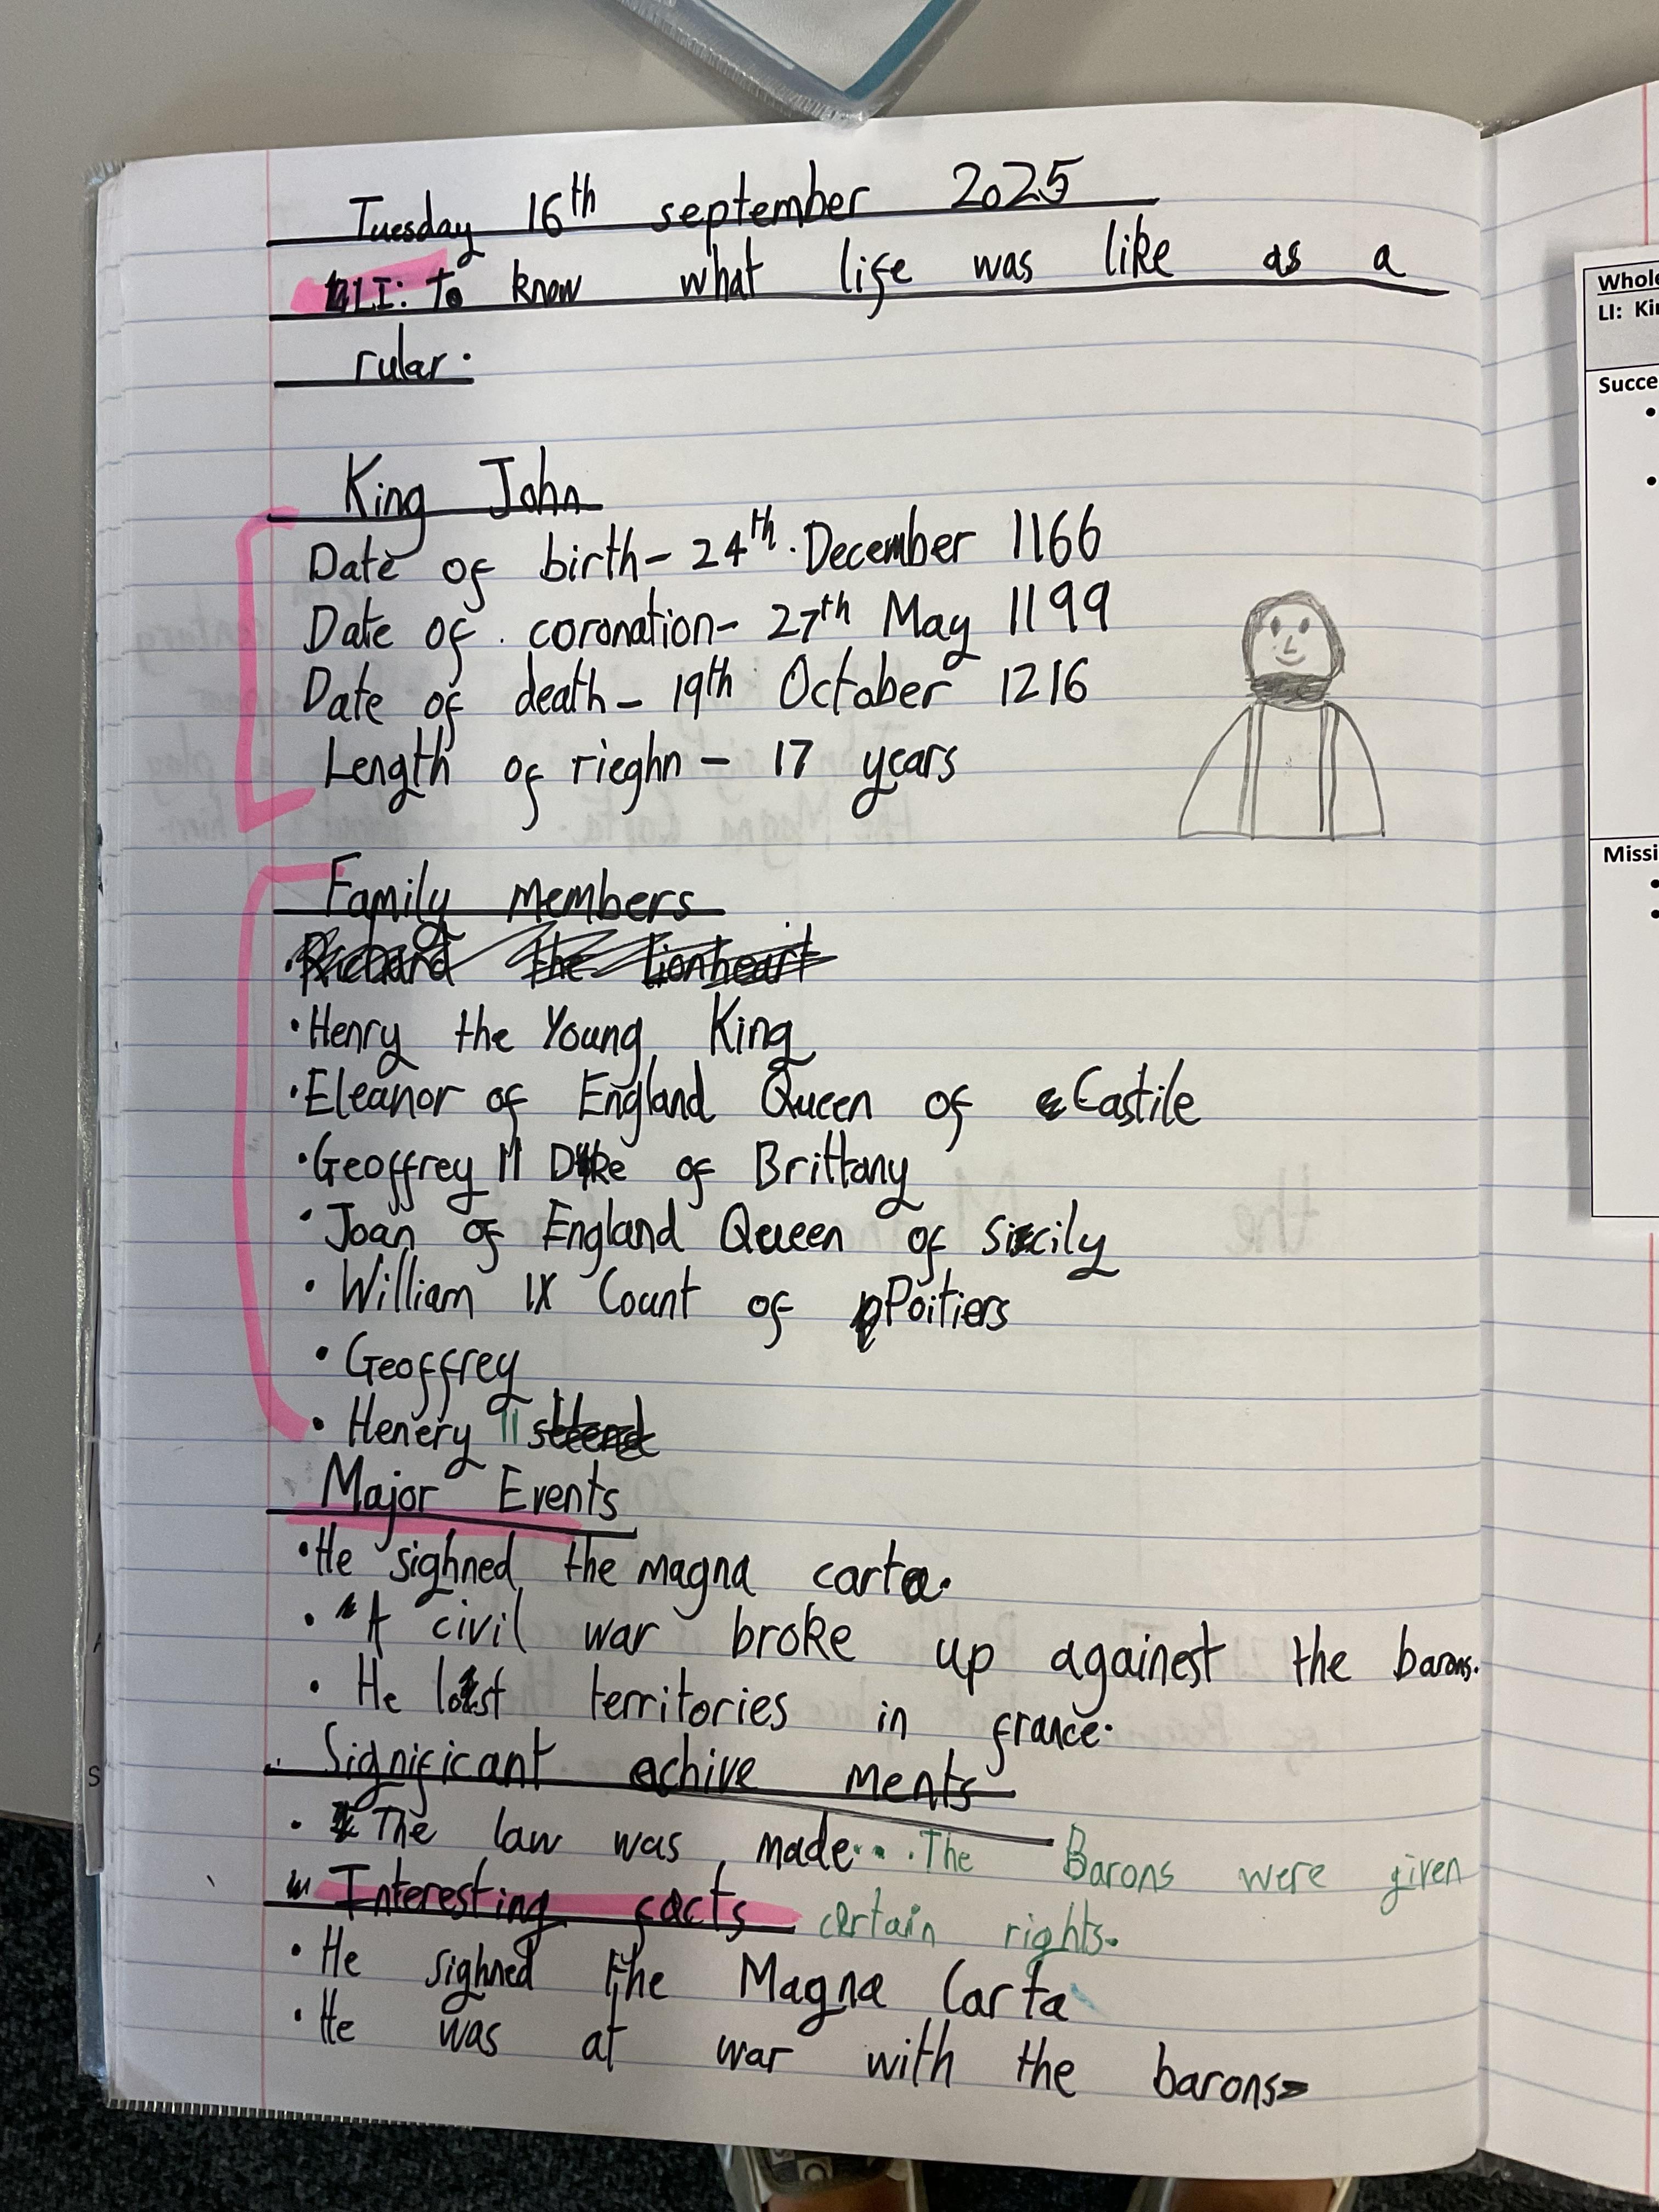 Tuesday 16th september 2025
LI: To know what life was like as a
rular.
King John
Date of birth- 24th. December 1166
Date of coronation- 27th May 1199
Date of death- 19th October 1216
Length of rieghn - 17 years
Family Members
• Richard the Lionheart
• Henry the Young King
• Eleanor of England Queen of Castile
• Geoffrey II Duke of Brittany
• Joan of England Queen of Sicily
• William IX Count of Poitiers
• Geoffrey
• Henery II
Major Events
• He sighned the magna carta.
• A civil war broke up againest the barons.
• He lost territories in france.
Significant achive ments
• The law was made... The Barons were given
Interesting facts certain rights.
• He sighned the Magna Carta
• He was at war with the barons
Whole
LI: Kin
Succe
Missi